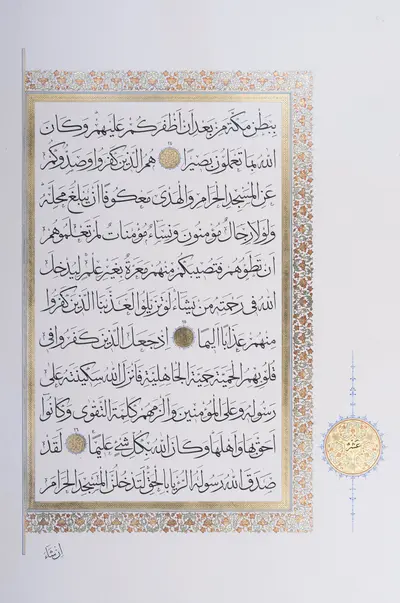 بِبَطْنِ مَكَّةَ مِنْ بَعْدِ أَنْ أَظْفَرَكُمْ عَلَيْهِمْ وَكَانَ
اللَّهُ بِمَا تَعْمَلُونَ بَصِيرًا ٢٤ هُمُ الَّذِينَ كَفَرُوا وَصَدُّوكُمْ
عَنِ الْمَسْجِدِ الْحَرَامِ وَالْهَدْيَ مَعْكُوفًا أَنْ يَبْلُغَ مَحِلَّهُ
وَلَوْلَا رِجَالٌ مُؤْمِنُونَ وَنِسَاءٌ مُؤْمِنَاتٌ لَمْ تَعْلَمُوهُمْ
أَنْ تَطَئُوهُمْ فَتُصِيبَكُمْ مِنْهُمْ مَعَرَّةٌ بِغَيْرِ عِلْمٍ لِيُدْخِلَ
اللَّهُ فِي رَحْمَتِهِ مَنْ يَشَاءُ لَوْ تَزَيَّلُوا لَعَذَّبْنَا الَّذِينَ كَفَرُوا
مِنْهُمْ عَذَابًا أَلِيمًا ٢٥ إِذْ جَعَلَ الَّذِينَ كَفَرُوا فِي
قُلُوبِهِمُ الْحَمِيَّةَ حَمِيَّةَ الْجَاهِلِيَّةِ فَأَنْزَلَ اللَّهُ سَكِينَتَهُ عَلَى
رَسُولِهِ وَعَلَى الْمُؤْمِنِينَ وَأَلْزَمَهُمْ كَلِمَةَ التَّقْوَى وَكَانُوا
أَحَقَّ بِهَا وَأَهْلَهَا وَكَانَ اللَّهُ بِكُلِّ شَيْءٍ عَلِيمًا ٢٦ لَقَدْ
صَدَقَ اللَّهُ رَسُولَهُ الرُّؤْيَا بِالْحَقِّ لَتَدْخُلُنَّ الْمَسْجِدَ الْحَرَامَ
عشر
إِنْ شَاءَ